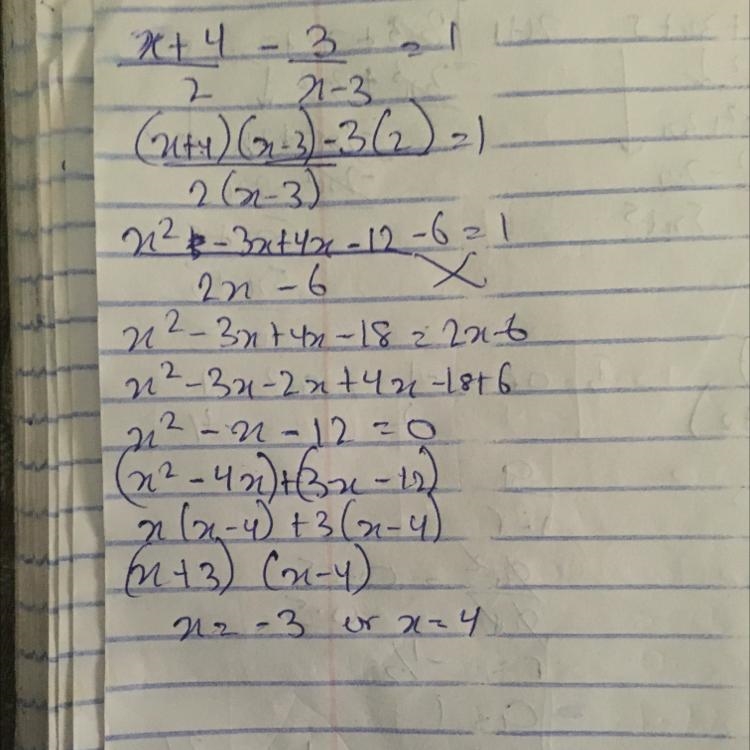 x+4/2 - 3/x-3 = 1
(x+4)(x-3)-3(2)/2(x-3) = 1
x² -3x+4x-12-6/2x-6 = 1
x²-3x+4x-18 = 2x-6
x²-3x-2x+4x-18+6
x²-x-12=0
(x²-4x)+(3x-12)
x(x-4)+3(x-4)
(x+3) (x-4)
x=-3 or x=4